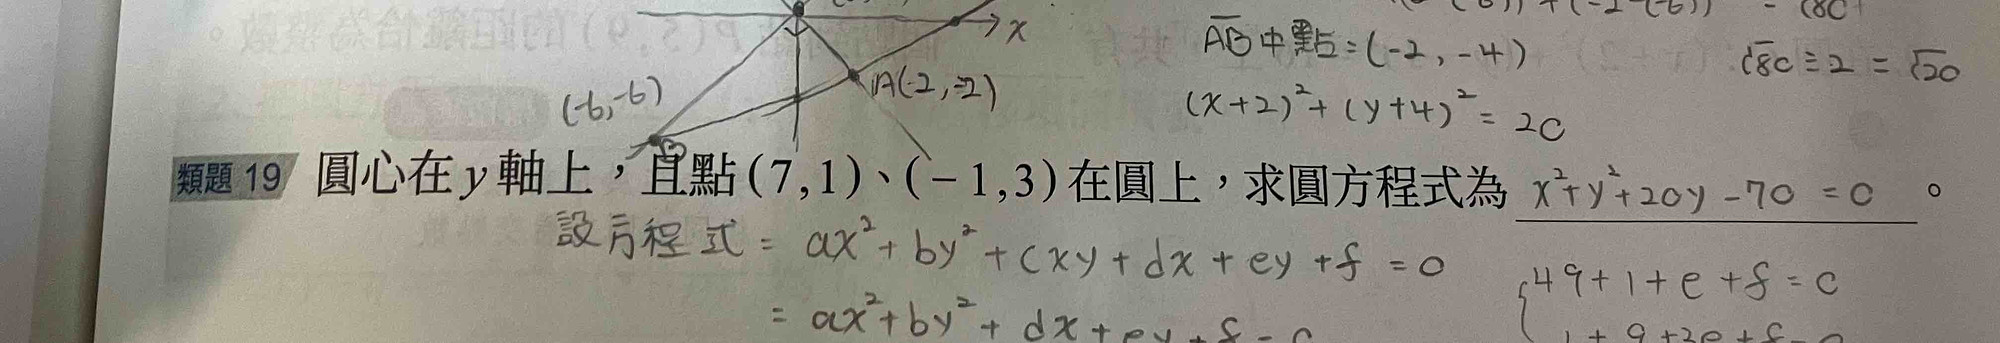 x
A(-2,-2)
(-6,-6)
B
AB中點:(-2,-4)
√80÷2=√20
(x+2)²+(y+4)²=20
類題 19 圓心在 y 軸上,且點(7,1)、(-1,3)在圓上,求圓方程式為 x²+y²+20y-70=0 。
設方程式= ax²+by²+cxy+dx+ey+f=0
49+1+e+f=0
= ax²+by²+dx+ey+f=0
1+9+3e+f=0